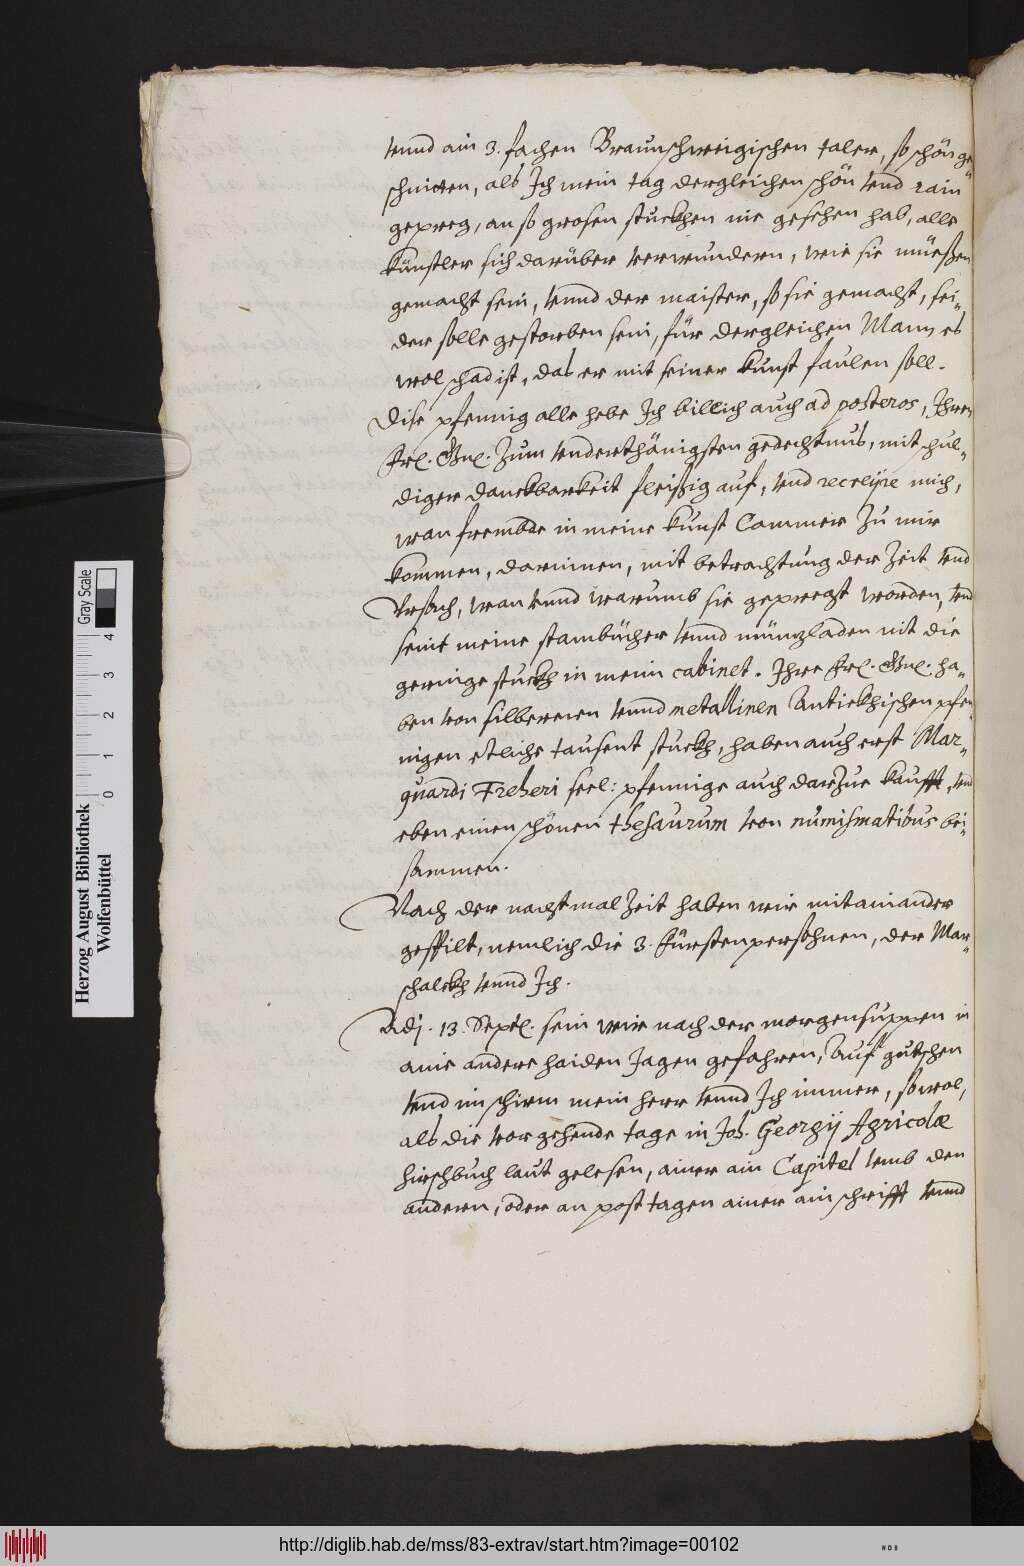 vnnd ain 3. fachen Braunschweigischen taler, so schön ge-
schniten, als Ich mein tag dergleichen schön vnd rain
gepreg, an so grosen stuckhen nie gesehen hab, alle
künstler sich darüber verwundern, wie sie müeßen
gemacht sein, vnnd der maister, so sie gemacht, sei-
der solle gestorben sein, für dergleichen Mann es
wol schad ist, das er mit seiner kunst faulen soll.
Dise pfennig alle hebe Ich billich auch ad posteros, Ihrer
Frl. Gnl. Zum vnderthänigsten gedechtnus, mit schul-
diger danckbarkeit fleißig auf, vnd recreire mich,
wan frembde in meine kunst Cammer Zu mir
kommen, darinnen, mit betrachtung der Zeit vnd
Vrsach, wan vnnd warumb sie gepregt worden, vnd
seint meine stambücher vnnd münzladen nit die
geringe stuckh in meim cabinet. Ihre Frl. Gnl. ha-
ben von silberenen vnnd metallinen Antickhischen pfen-
nigen etliche tausent stuckh, haben auch erst Mar-
quardi Freheri seel: pfennige auch darZue kaufft, vnd
eben einen schönen thesaurum von numismatibus bei-
sammen.
Nach der nachtmalZeit haben wir mitainander
gespilt, nemlich die 3. Fürstenpersohnen, der Mar-
schalckh vnnd Ich.
Adj. 13. Septl. sein wir nach der morgensuppen in
aine andere haiden Jagen gefahren, Auf gutschen
vnd im schirm mein herr vnnd Ich immer, sowol,
als die vorgehende tage in Joh. Georgij Agricolæ
hirschbuch laut gelesen, ainer ain Capitel vmb den
andern, oder an posttagen ainer ain schrifft vnnd
Herzog August Bibliothek
Wolfenbüttel
0 1 2 3 4
Gray Scale
http://diglib.hab.de/mss/83-extrav/start.htm?image=00102